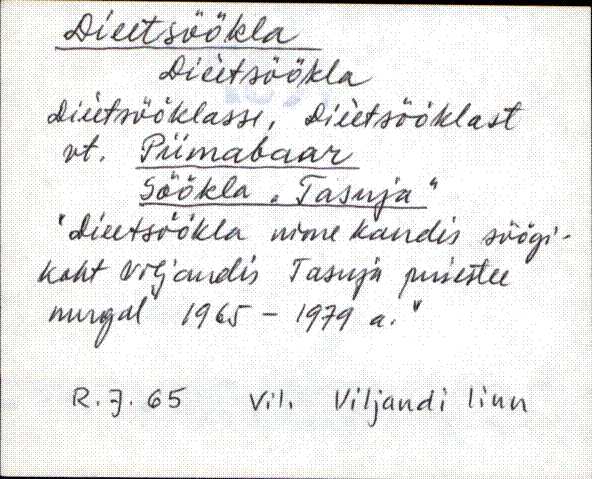 Dieetsöökla
Dièetsöökla
Dièetsööklasse, Dièetsööklast
vt. Piimabaar
Söökla „Tasuja"
"Dieetsöökla nime kandis söögi-
koht Viljandis Tasuja puiestee
nurgal 1965 – 1979 a."
R.J. 65 Vil. Viljandi linn